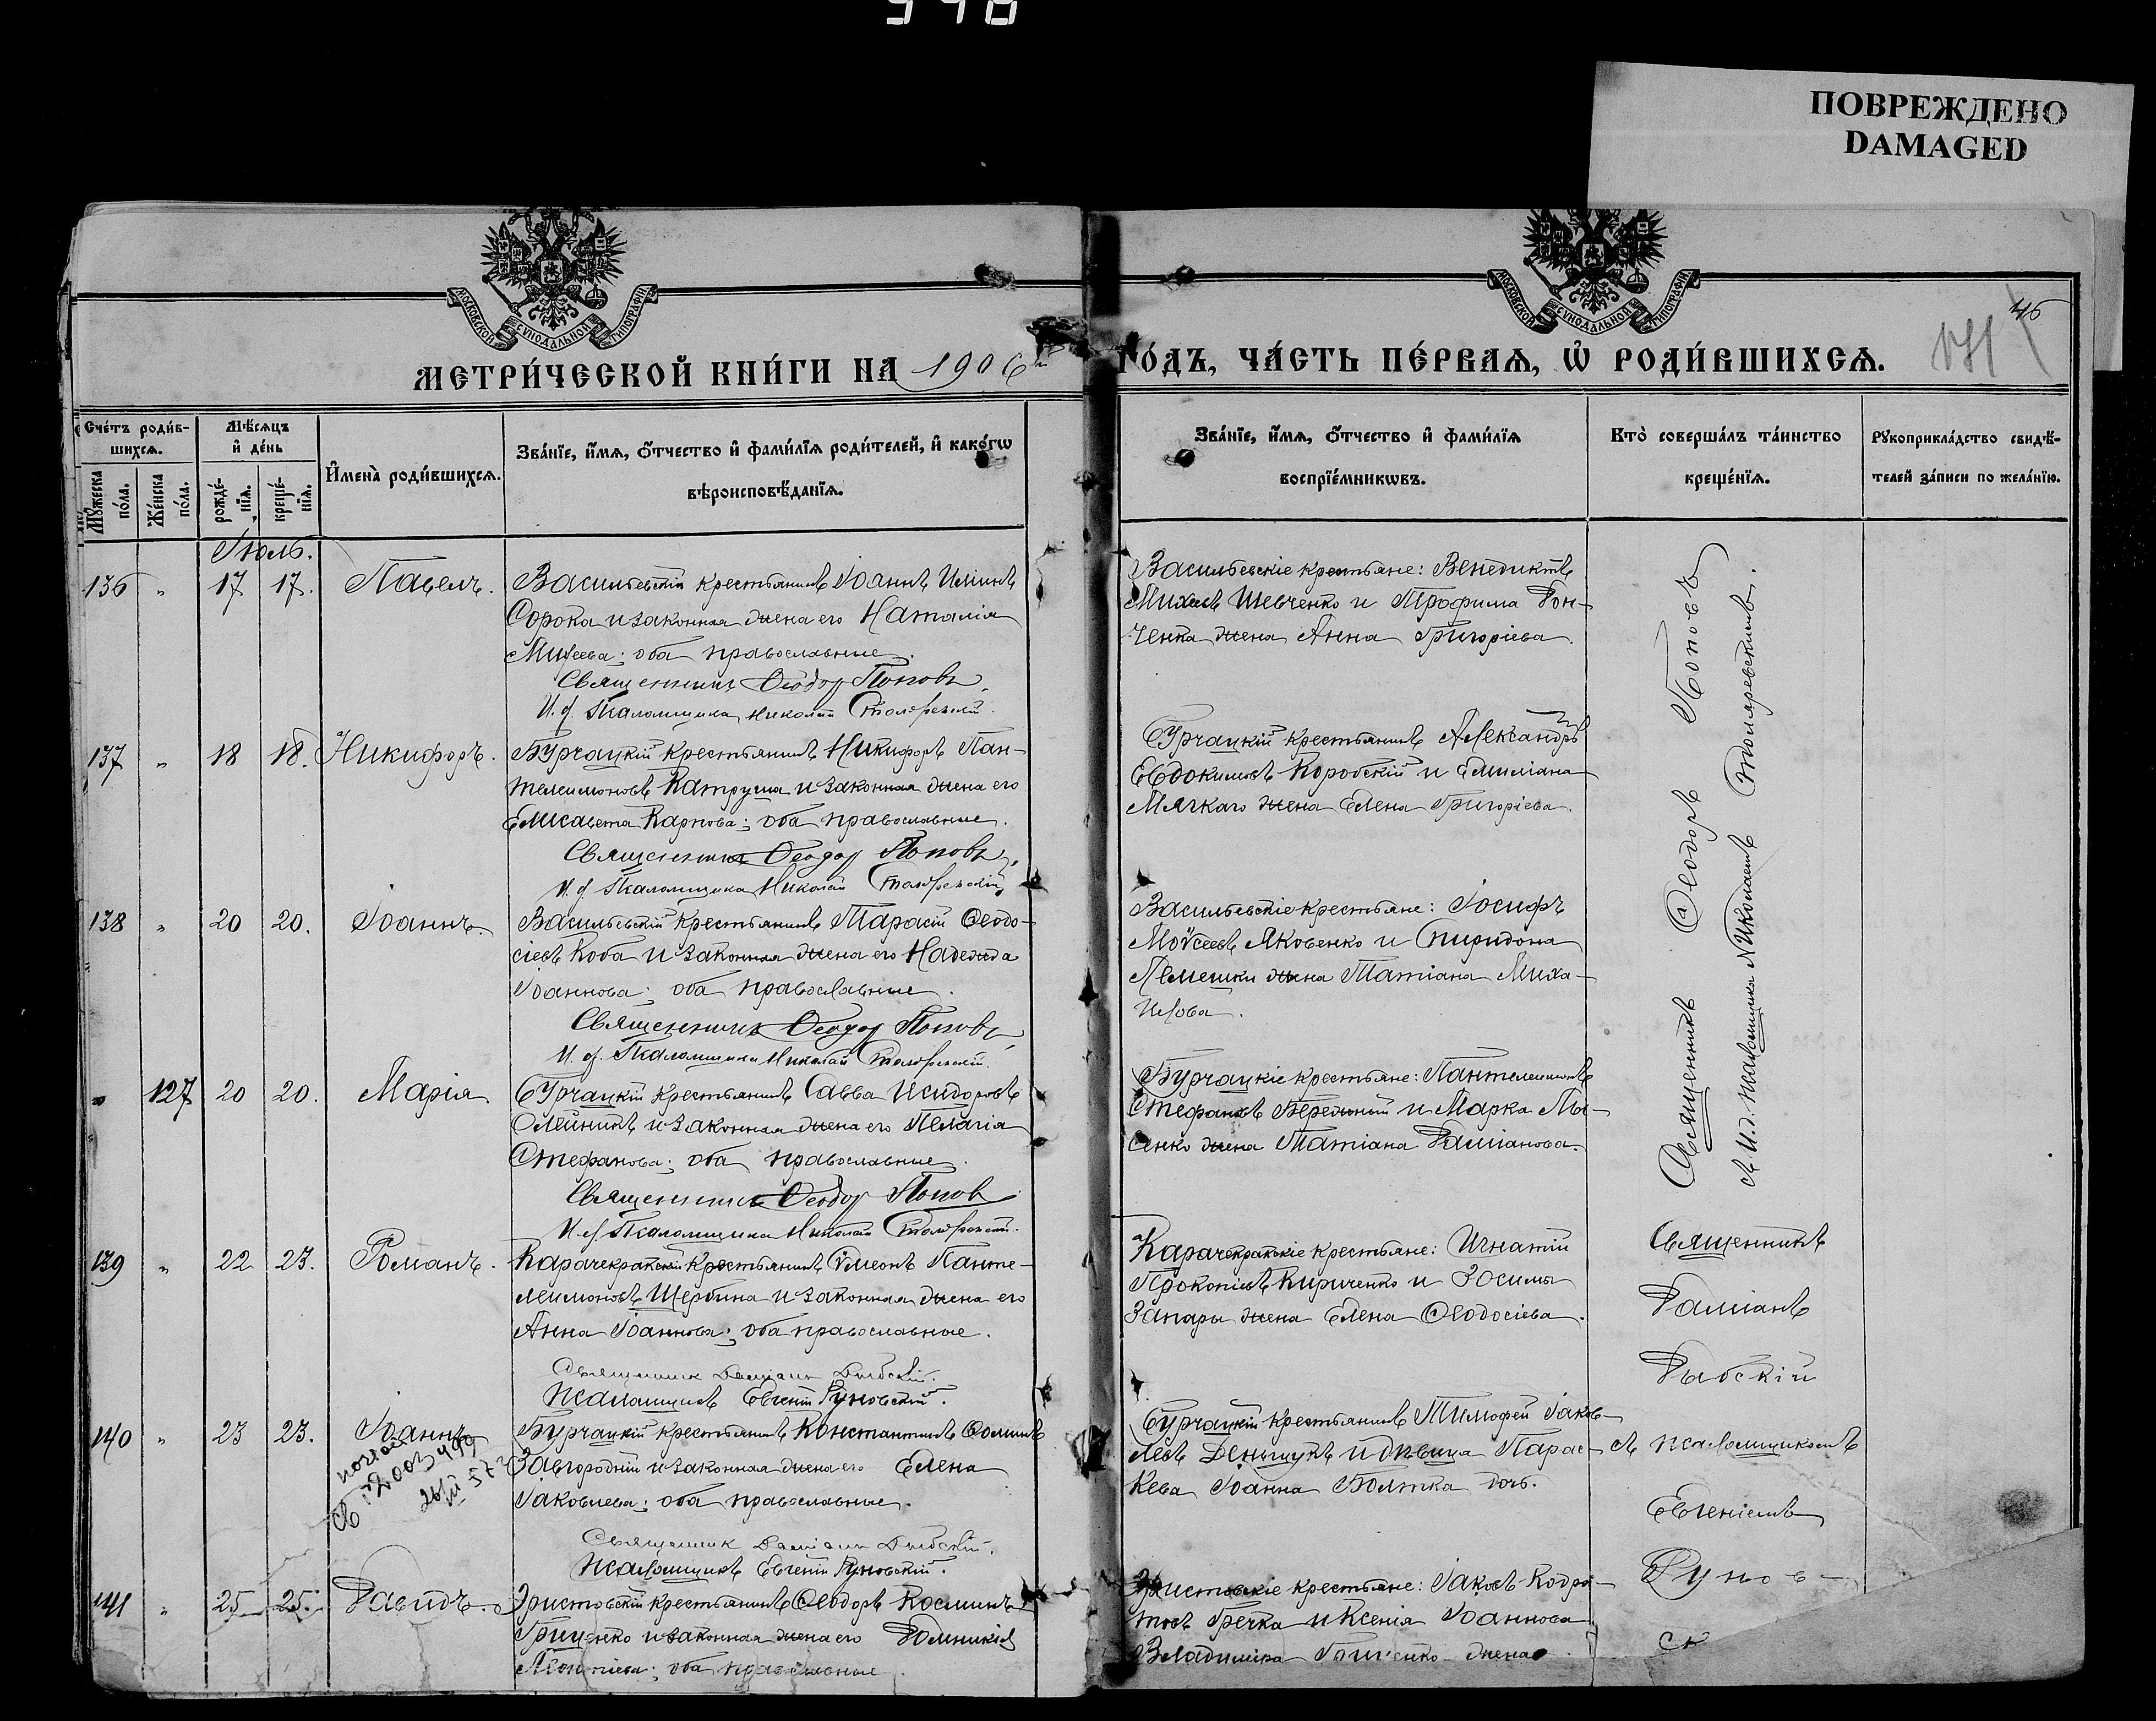 ПОВРЕЖДЕНО
DAMAGED
МОСКОВСКОЙ СѴНОДАЛЬНОЙ ТИПОГРАФІИ
МОСКОВСКОЙ СѴНОДАЛЬНОЙ ТИПОГРАФІИ
46
МЕТРИ́ЧЕСКОЙ КНИ́ГИ НА 1906 ГО́ДЪ, ЧА́СТЬ ПЕ́РВАѦ, Ѡ҆ РОДИ́ВШИХСѦ.
Сче́тъ роди́вшихсѧ.
Мѣ́сѧцъ и҆ де́нь
Мꙋ́жеска по́ла.
Же́нска по́ла.
рожде́нїѧ.
креще́нїѧ.
И҆мена̀ роди́вшихсѧ.
Зва́нїе, и҆́мѧ, ѻ҆́тчество и҆ фами́лїѧ роди́телей, и҆ како́гѡ
вѣроисповѣ́данїѧ.
Зва́нїе, и҆́мѧ, ѻ҆́тчество и҆ фами́лїѧ
воспрїе́мникѡвъ.
Кто̀ соверша́лъ та́инство
креще́нїѧ.
Рꙋкоприкла́дство свидѣ́-
телей за́писи по жела́нїю.
Іюль.
136 " 17 17. Павелъ. Васильевскій крестьянинъ Іоаннъ Иліинъ
Сорока и законная жена его Наталія
Михеева; оба православные.
Священникъ Ѳеодоръ Поповъ
И. д. Псаломщика Николай
Васильевскіе крестьяне: Венедиктъ
Михеевъ Шевченко и Трофима Гон-
ченка жена Анна Григоріева.
137 " 18 18. Никифоръ. Бурчацкій крестьянинъ Никифоръ Пан-
телеимоновъ Катруша и законная жена его
Елисавета Карпова; оба православные.
Священникъ Ѳеодоръ Поповъ
И. д. Псаломщика Николай
Бурчацкій крестьянинъ Александръ
Евдокимовъ Коробскій и Емиліана
Мягкаго жена Елена Григоріева.
138 " 20 20. Іоаннъ. Васильевскій крестьянинъ Тарасій Ѳеодо-
сіевъ Коба и законная жена его Надежда
Іоаннова; оба православные.
Священникъ Ѳеодоръ Поповъ
И. д. Псаломщика Николай
Васильевскіе крестьяне: Іосифъ
Моѵсеевъ Яковенко и Спиридона
Лемешки жена Татіана Миха-
илова.
" 127 20 20. Марія. Бурчацкій крестьянинъ Савва Исидоровъ
Олейникъ и законная жена его Пелагія
Стефанова; оба православные.
Священникъ Ѳеодоръ Поповъ
И. д. Псаломщика Николай
Бурчацкіе крестьяне: Пантелеимонъ
Стефановъ Бережный и Марка Лы-
сенко жена Татіана Даміанова.
Священникъ Ѳеодоръ Поповъ
съ И. д. псаломщика Николаемъ
139 " 22 23. Романъ. Карачекракскій крестьянинъ Сѵмеонъ Панте-
леимоновъ Щербина и законная жена его
Анна Іоаннова; оба православные.
Священникъ Даміанъ Дыбскій.
Псаломщикъ Евгеній Руновскій.
Карачекракскіе крестьяне: Игнатій
Прокопіевъ Кириченко и Зосимы
Запары жена Елена Ѳеодосіева.
Священникъ
Даміанъ
Дыбскій
140 " 23 23. Іоаннъ. Бурчацкій крестьянинъ Константинъ Ѳоминъ
Завгородній и законная жена его Елена
Іаковлева; оба православные.
Священникъ Даміанъ Дыбскій.
Псаломщикъ Евгеній Руновскій.
Бурчацкій крестьянинъ Тимофей Іаков-
левъ Денищукъ и дѣвица Парас-
кева Іоанна Болтка дочь.
съ псаломщикомъ
Евгеніемъ
Рунов-
ск
141 " 25 25. Давидъ. Эристовскій крестьянинъ Ѳеодоръ Косминъ
Гриценко и законная жена его Домникія
Леонтіева; оба православные.
Эристовскіе крестьяне: Іаковъ Кодра-
товъ Гречка и Ксенія Іоаннова
Владиміра Гриценко жена.